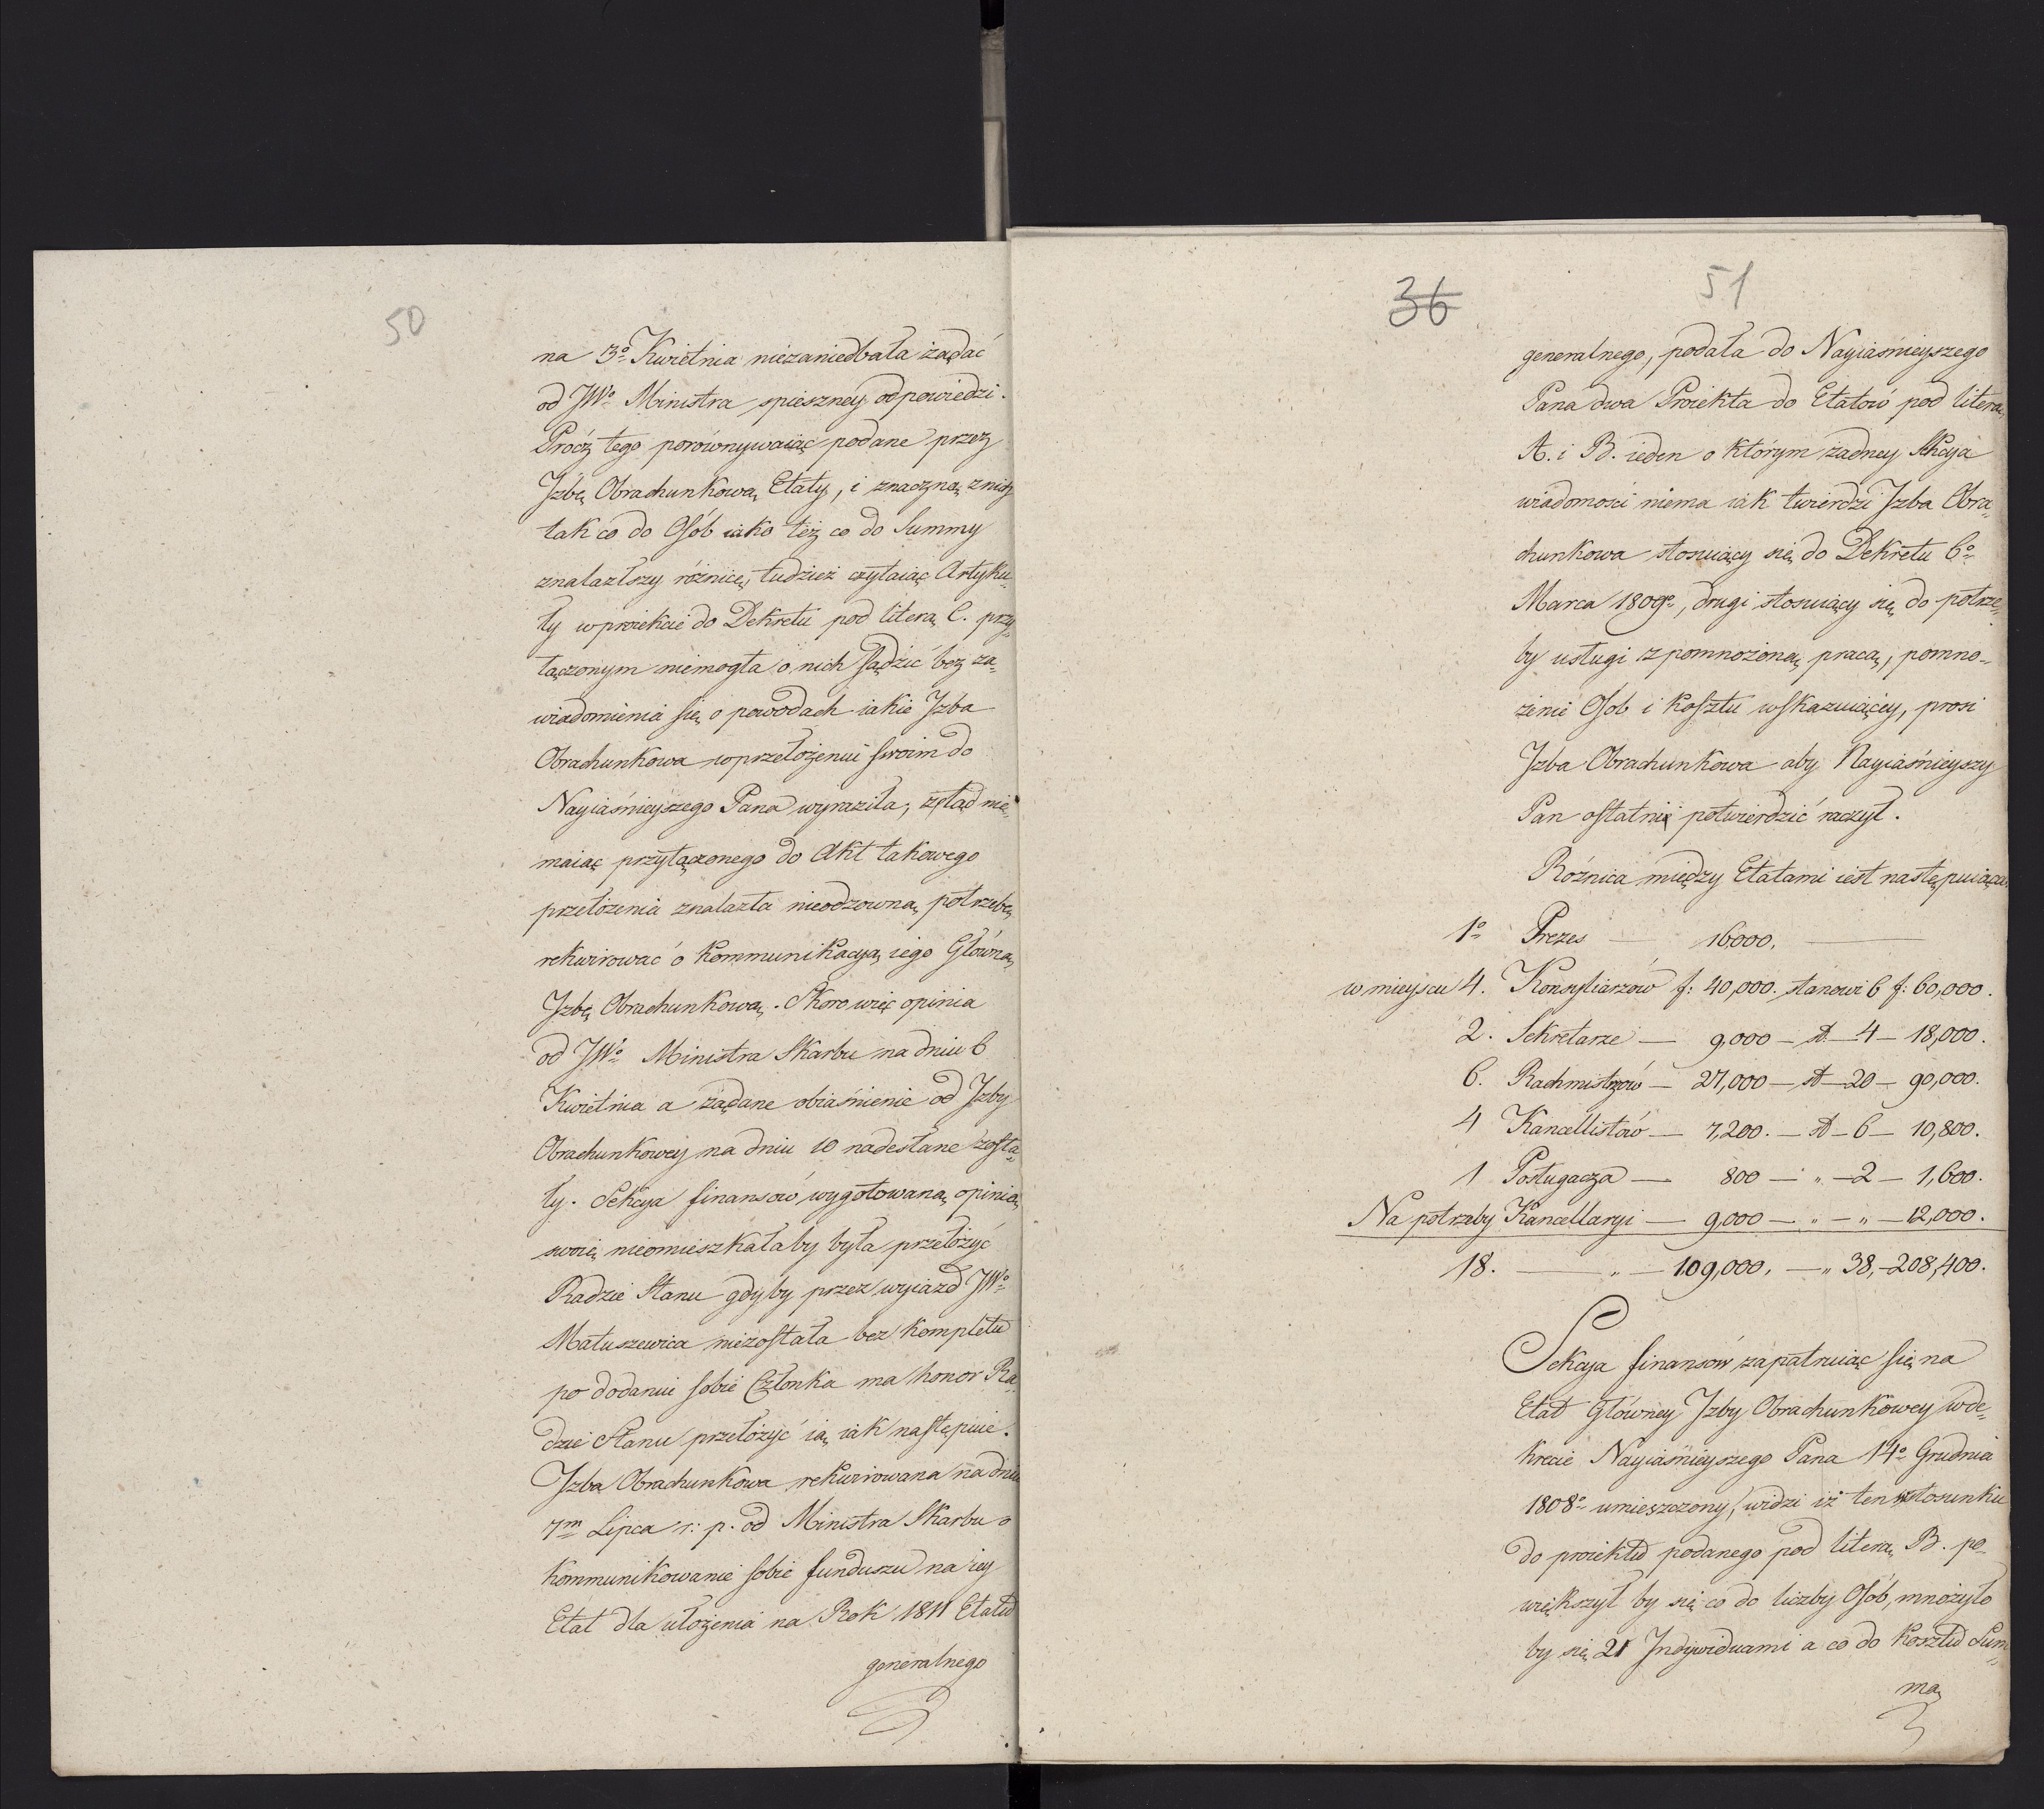 50
na 3o Kwietnia niezaniedbała żądać
od JWo Ministra spieszney odpowiedzi.
Prócz tego porównywaiąc podane przez
Jzbę Obrachunkową Etaty, i znaczną z nich
tak co do Osób iako też co do Summy
znalazłszy różnicę, tudzież czytaiąc Artyku
ły w proiekcie do Dekretu pod literą C. przy„
łączonym niemogła o nich sądzić bez za„
wiadomienia się o powodach iakie Jzba
Obrachunkowa w przełożeniu swoim do
Nayiaśnieyszego Pana wyraziła, ztąd nie„
maiąc przyłączonego do Akt takowego
przełożenia znalazła nieodzowną potrzebę
rekwirować o kommunikacyą iego Główną
Jzbę Obrachunkową. Skoro więc opinia
od JWo Ministra Skarbu na dniu 6
Kwietnia a żądane obiaśnienie od Jzby
Obrachunkowey na dniu 10 nadesłane zosta„
ły. Sekcya finansów wygotowaną opinią
swoię nieomieszkałaby była przełożyć
Radzie Stanu gdyby przez wyiazd JWo
Matuszewica niezostała bez kompletu
po dodaniu sobie Członka ma honor Ra„
dzie Stanu przełożyć ią iak następuie.
Jzba Obrachunkowa rekwirowana na dniu
7m Lipca r: p. od Ministra Skarbu o
kommunikowanie sobie funduszu na iey
Etat dla ułożenia na Rok 1811 Etatu
generalnego
36
51
generalnego, podała do Nayiaśnieyszego
Pana dwa Proiekta do Etatów pod literą
A. i B. ieden o którym żadney Sekcya
wiadomości niema iak twierdzi Jzba Obra„
chunkowa stosuiący się do Dekretu 6o
Marca 1809o, drugi stosuiący się do potrze„
by usługi z pomnożoną pracą, pomno„
żenie Osob i kosztu wskazuiącey, prosi
Jzba Obrachunkowa aby Nayiaśnieyszy
Pan ostatni potwierdzić raczył.
Roźnica między Etatami iest następuiąca
1o Prezes — 16000. —
w mieyscu 4. Konsyliarzów f: 40,000. stanowi 6 f: 60,000.
2. Sekretarze — 9,000 — st — 4 — 18,000.
6. Rachmistrzów — 27,000 — st — 20 — 90,000.
4 Kancellistów — 7,200. — st — 6 — 10,800.
1 Posługacza — 800 — „ — 2 — 1,600.
Na potrzeby Kancellaryi — 9,000 — „ — „ — 12,000.
18. — „ — 109,000. — „ 38, — 208,400.
Sekcya finansów zapatruiąc się na
Etat Główney Jzby Obrachunkowey w de„
krecie Nayiaśnieyszego Pana 14o Grudnia
1808o umieszczony, widzi iż ten w stosunku
do proiektu podanego pod literą B. po„
większył by się co do liczby Osób, mnożyło
by się 21 Jndywiduami a co do kosztu Sum„
mą